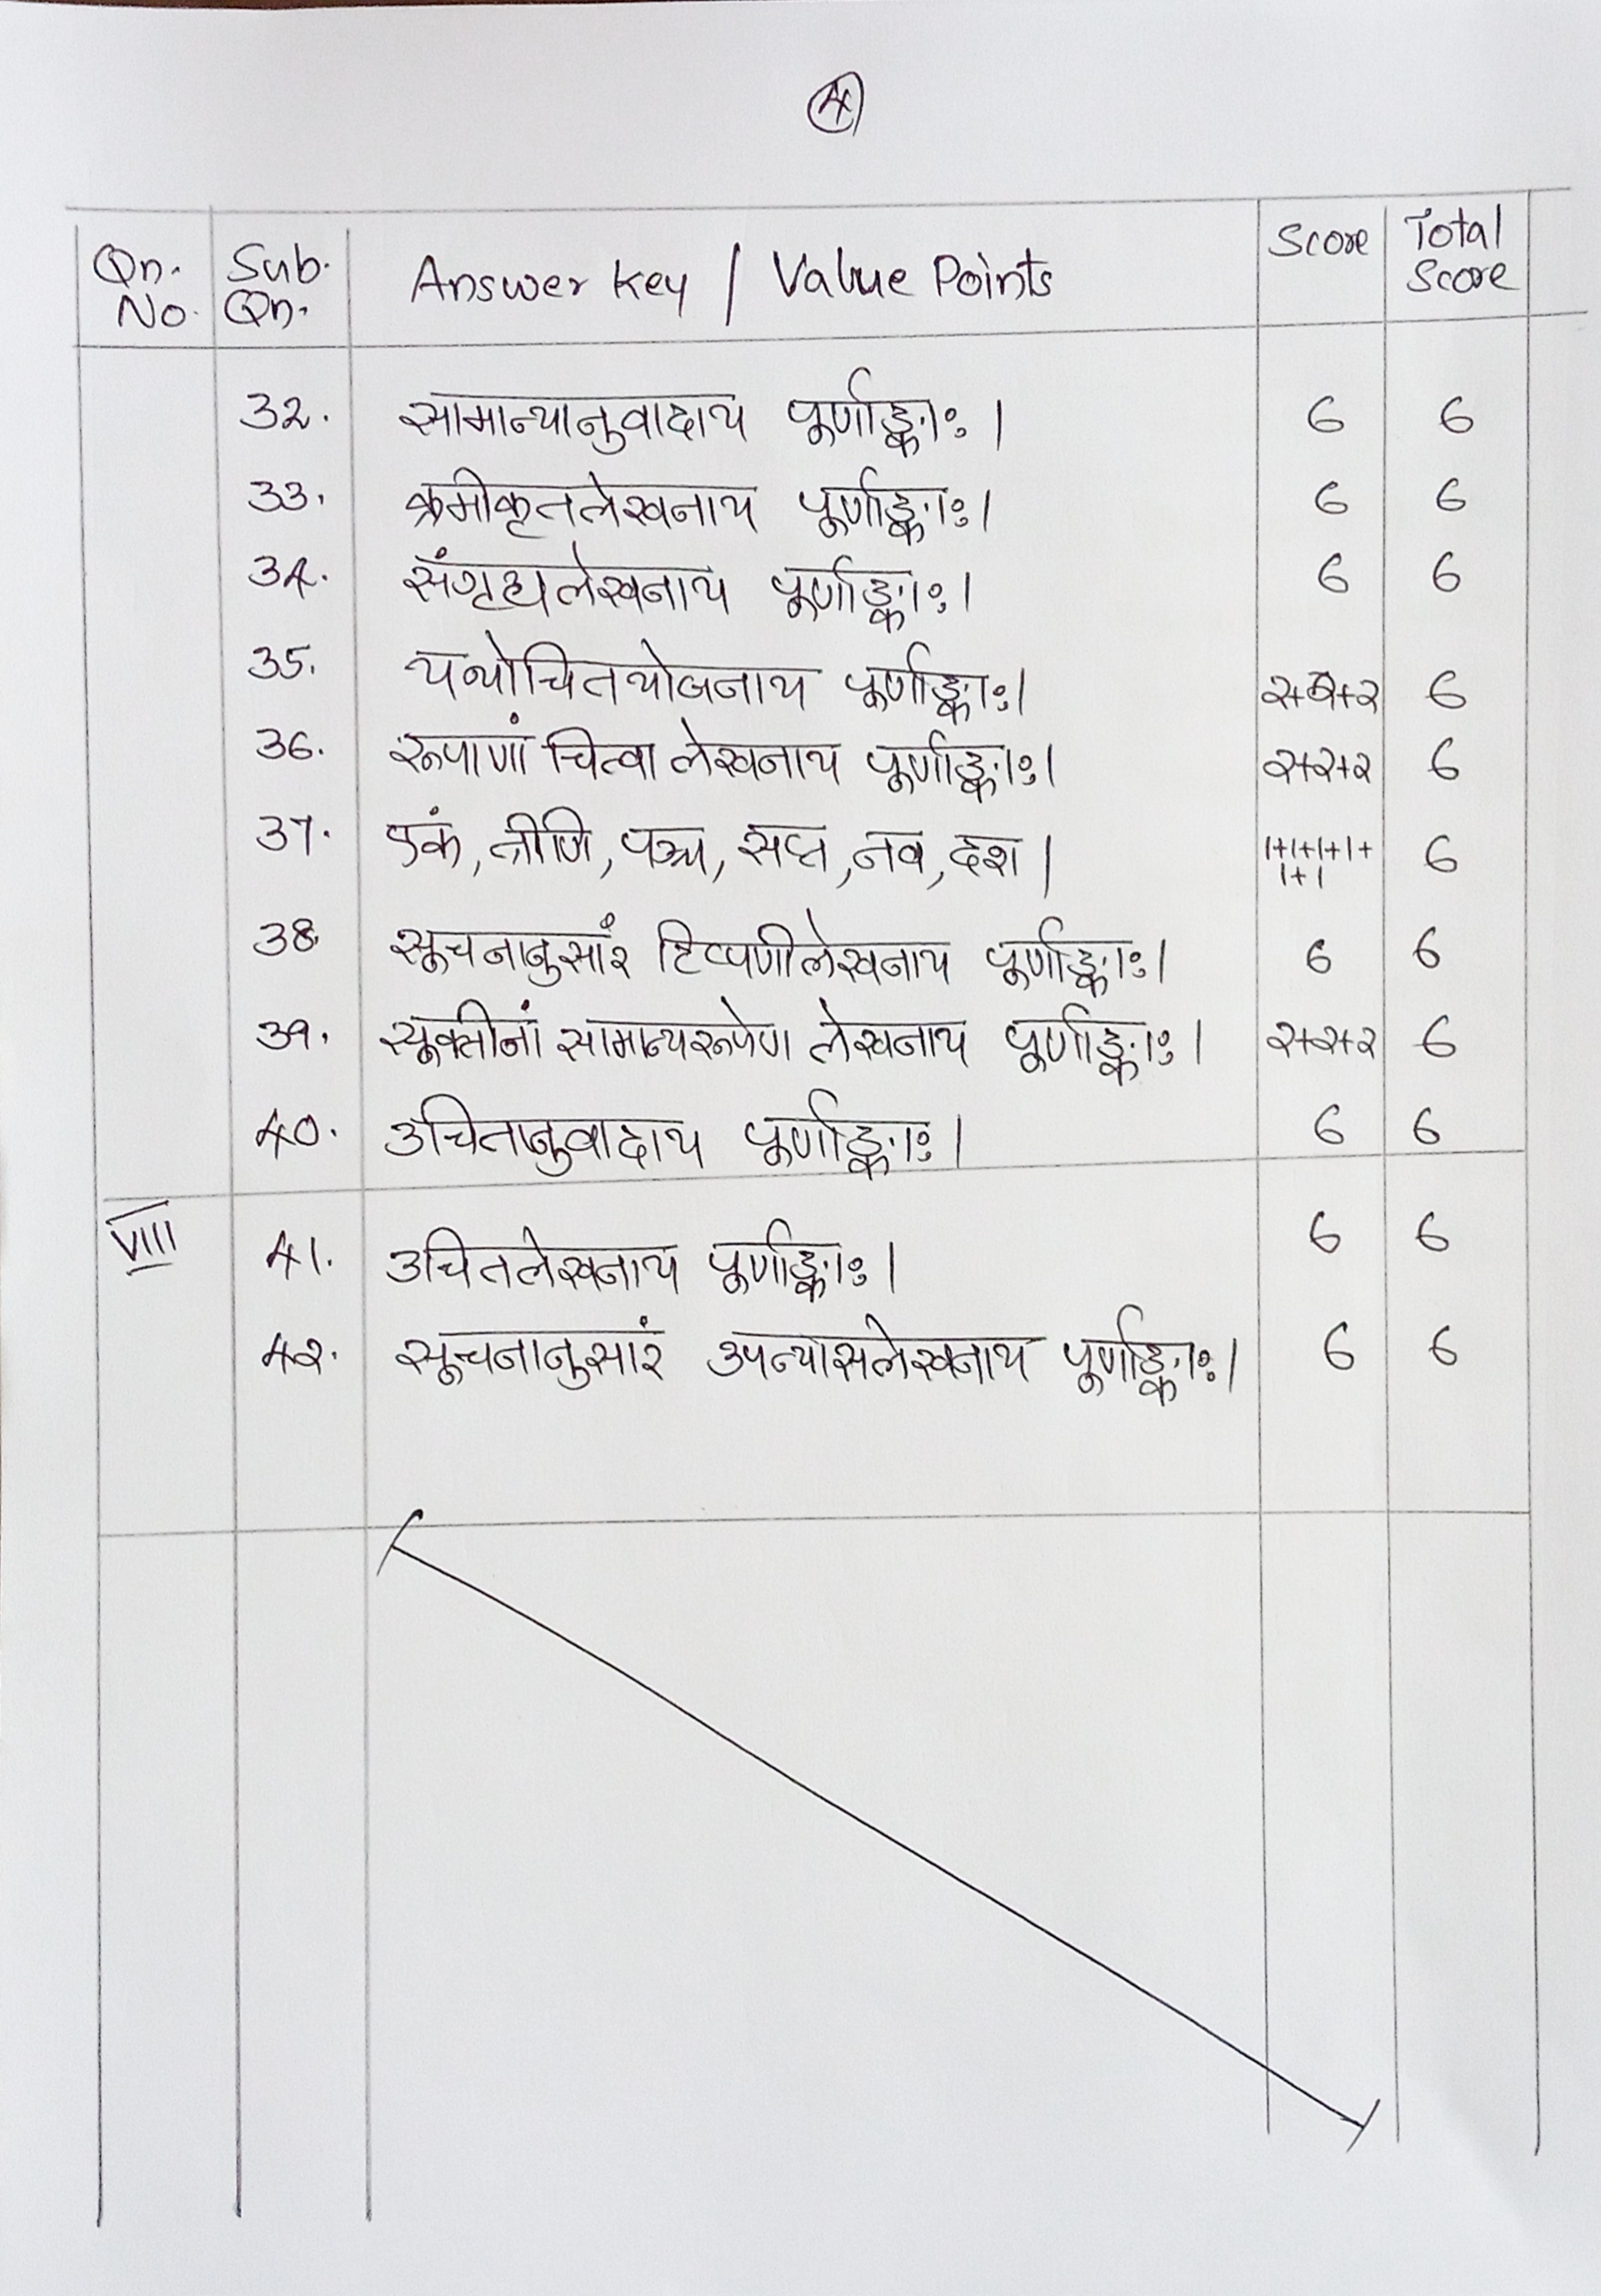 4
Qn. No. Sub. Qn. Answer Key / Value Points Score Total Score
32. सामान्यानुवादाय पूर्णाङ्काः । 6 6
33. क्रमीकृतलेखनाय पूर्णाङ्काः । 6 6
34. संगृह्य लेखनाय पूर्णाङ्काः । 6 6
35. यथोचितयोजनाय पूर्णाङ्काः । 2+2+2 6
36. रूपाणां चित्वा लेखनाय पूर्णाङ्काः । 2+2+2 6
37. एकं, त्रीणि, पञ्च, सप्त, नव, दश । 1+1+1+1+1+1 6
38. सूचनानुसारं टिप्पणीलेखनाय पूर्णाङ्काः । 6 6
39. सूक्तीनां सामान्यरूपेण लेखनाय पूर्णाङ्काः । 2+2+2 6
40. उचितानुवादाय पूर्णाङ्काः । 6 6
VIII 41. उचितलेखनाय पूर्णाङ्काः । 6 6
42. सूचनानुसारं उपन्यासलेखनाय पूर्णाङ्काः । 6 6